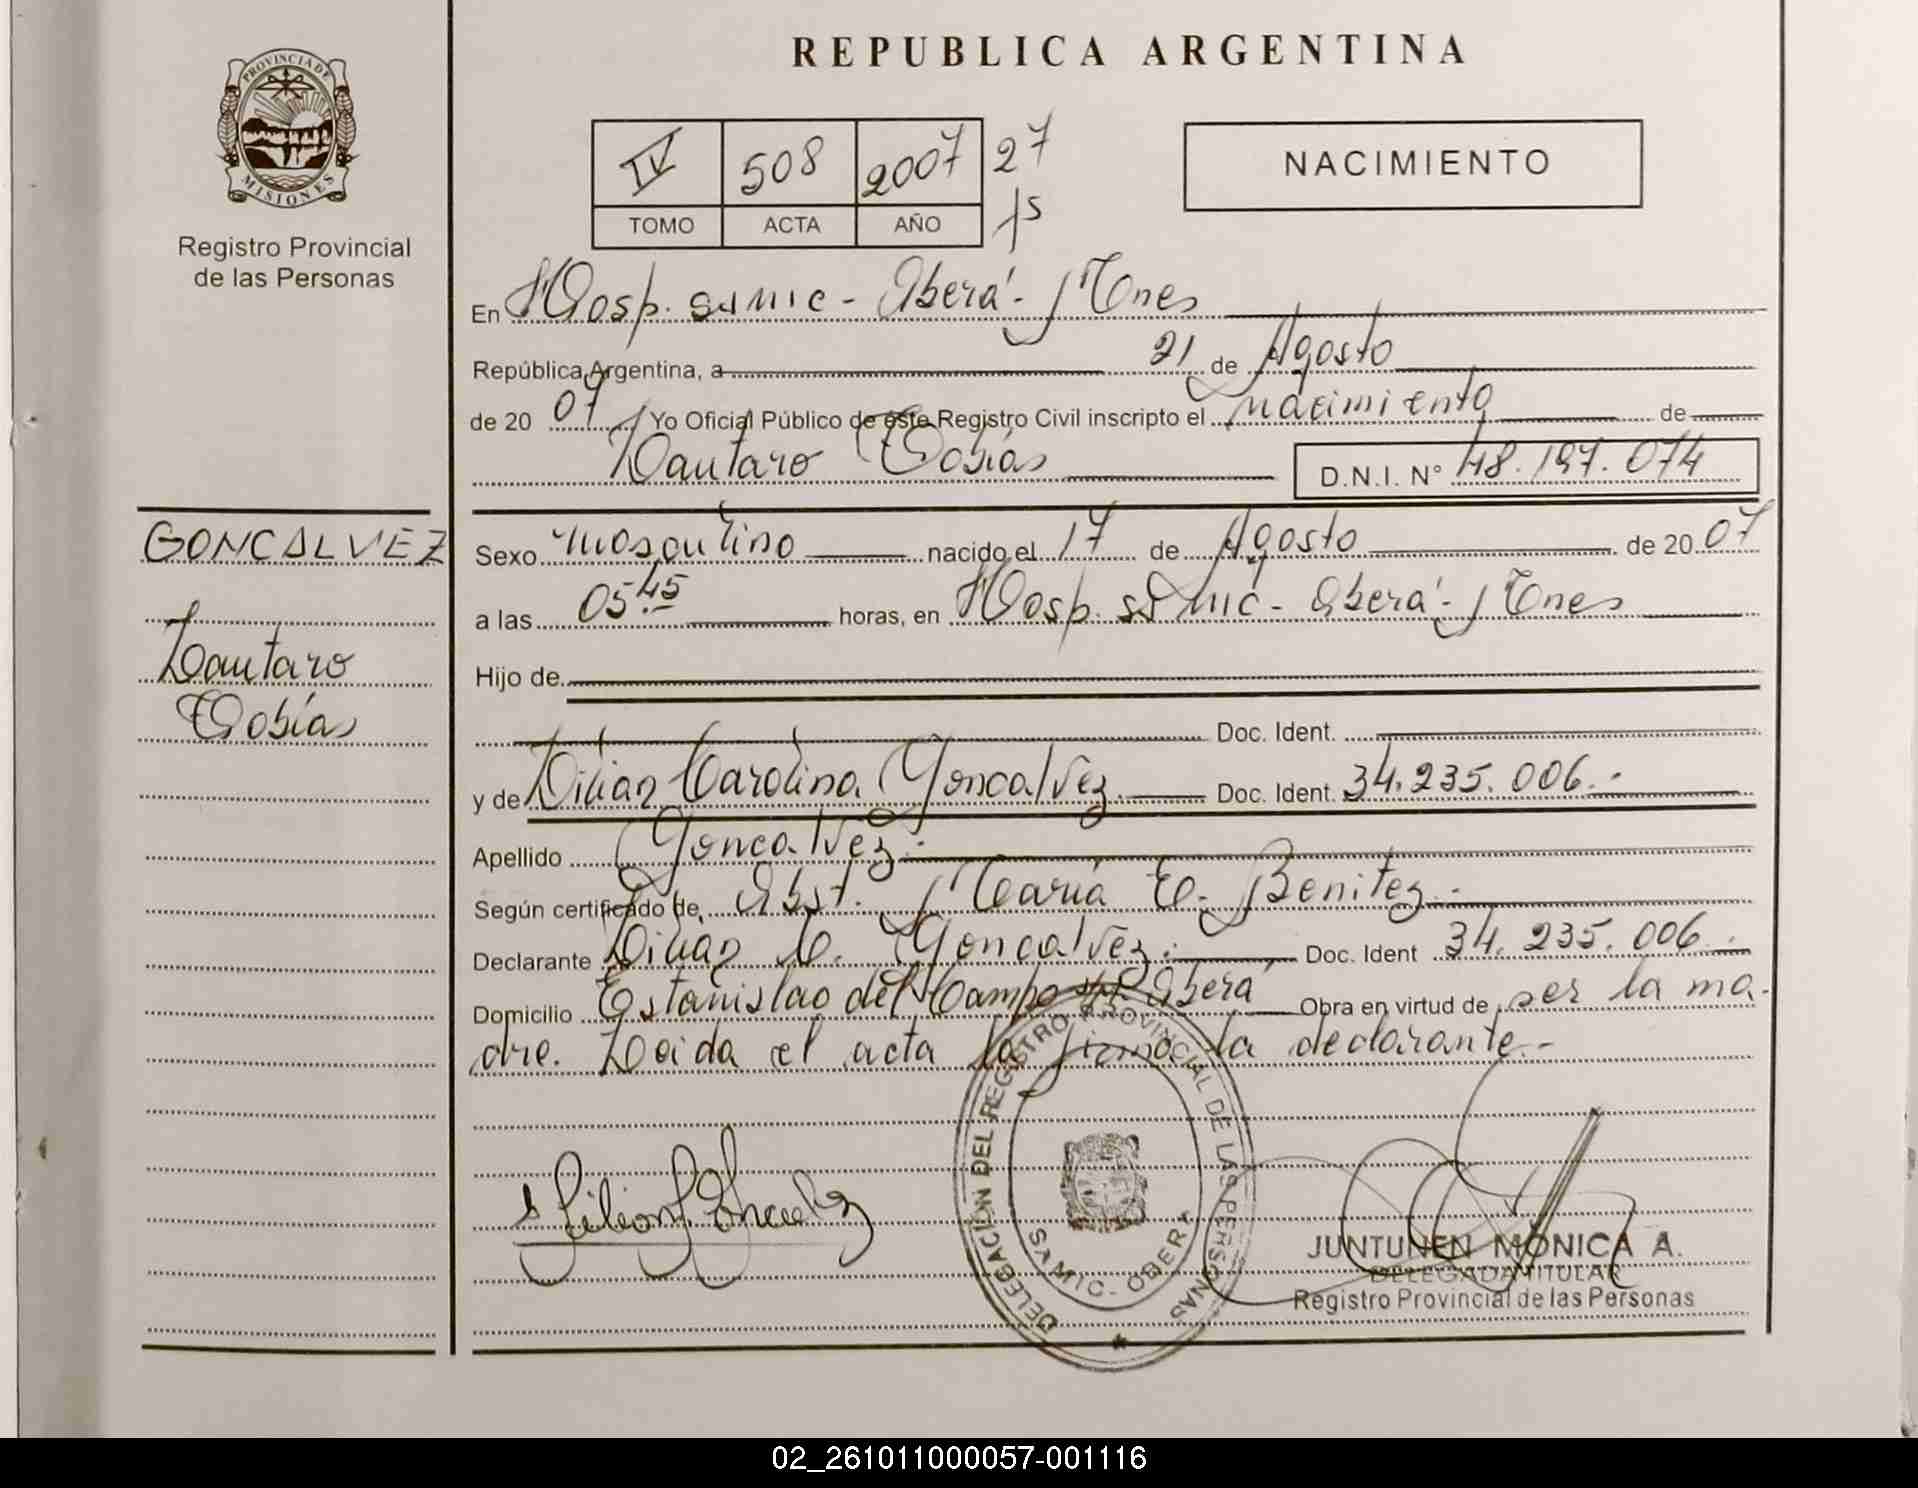 REPUBLICA ARGENTINA
PROVINCIA DE
MISIONES
Registro Provincial
de las Personas
IV 508 2007 27
TOMO ACTA AÑO
NACIMIENTO
En Hosp. SAMIC - Oberá - Mnes
República Argentina, a 21 de Agosto
de 20 07 Yo Oficial Público de este Registro Civil inscripto el nacimiento de
Lautaro Tobías D.N.I. N° 48.197.074
GONCALVEZ
Lautaro
Tobías
Sexo masculino nacido el 17 de Agosto de 20 07
a las 05.45 horas, en Hosp. SAMIC - Oberá - Mnes
Hijo de
Doc. Ident.
y de Lilian Carolina Goncalvez Doc. Ident. 34.235.006.-
Apellido Goncalvez.-
Según certificado de Obst. María E. Benitez.-
Declarante Lilian C. Goncalvez.- Doc. Ident 34.235.006.-
Domicilio Estanislao del Campo Oberá Obra en virtud de ser la ma-
dre. Leida el acta la firma la declarante.-
DELEGACION DEL REGISTRO PROVINCIAL DE LAS PERSONAS
SAMIC - OBERA
JUNTUNEN MONICA A.
DELEGADA TITULAR
Registro Provincial de las Personas
02_261011000057-001116